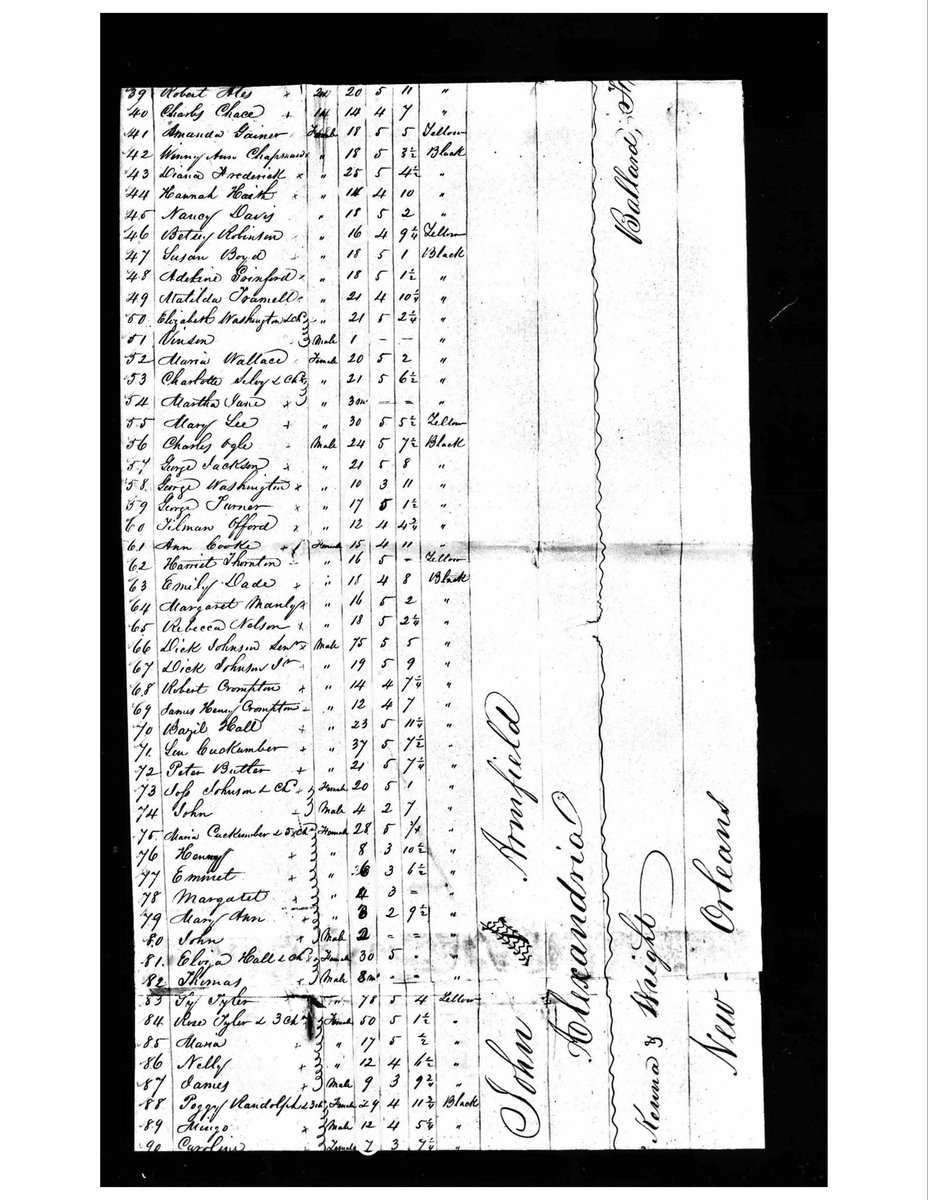 39 Robert Ales x 24 20 5 11 "
40 Charles Chace x 14 14 4 7 "
41 Amanda Gainer Female 18 5 5 Yellow
42 Winny Ann Chapman x " 18 5 3½ Black
43 Diana Frederick x " 25 5 4½ "
44 Hannah Haith x " 14 4 10 "
45 Nancy Davis " 18 5 2 "
46 Betsey Robinson " 16 4 9¼ Yellow
47 Susan Boyd x " 18 5 1 Black
48 Adeline x " 18 5 1½ "
49 Matilda Tramell " 21 4 10¼ "
50 Elizabeth Washington & Ch " 21 5 2¼ "
51 Vinson Male 1 – – "
52 Maria Wallace Female 20 5 2 "
53 Charlotte Selvy & Ch " 21 5 6½ "
54 Martha Jane x " 3 m – – "
55 Mary Lee x " 30 5 5½ Yellow
56 Charles Ogle Male 24 5 7½ Black
57 George Jackson x " 21 5 8 "
58 George Washington x " 10 3 11 "
59 George Turner x " 17 5 1½ "
60 Tilman Offord x " 12 4 4¾ "
61 Ann Cooke x Female 15 4 11 "
62 Harriet Thornton – " 16 5 – Yellow
63 Emily Dade x " 18 4 8 Black
64 Margaret Manly x " 16 5 2 "
65 Rebecca Nelson x " 18 5 2¼ "
66 Dick Johnson Senr x Male 75 5 5 "
67 Dick Johnson Jr " 19 5 9 "
68 Robert Crompton x " 14 4 7¼ "
69 James Henry Crompton " 12 4 7 "
70 Bazil Hall + " 23 5 11¼ "
71 Leu Cuckumber + " 37 5 7½ "
72 Peter Butler + " 21 5 7¼ "
73 Johnson & Ch + Female 20 5 1 "
74 John + Male 4 2 7 "
75 Maria Cuckumber & 5 Ch Female 28 5 ¼ "
76 Henny + " 8 3 10½ "
77 Emmet + " 6 3 6½ "
78 Margatet x " 4 3 – "
79 Mary Ann + " 3 2 9½ "
80 John x Male 2 – – "
81 Eloiza Hall & Ch Female 30 5 " "
82 Thomas + Male 8 m " " "
83 Tyler " 78 5 4 Yellow
84 Rose Tyler & 3 Ch Female 50 5 1½ "
85 Maria + " 17 5 ½ "
86 Nelly + " 12 4 6½ "
87 James + Male 9 3 9¾ "
88 Peggy Randolph & 3 ch Female 29 4 11¾ Black
89 Mingo x Male 12 4 5½ "
90 Caroline Female 7 3 7¼ "
John Armfield
Alexandria
Ballard, Fr
Kenna & Wright
New-Orleans